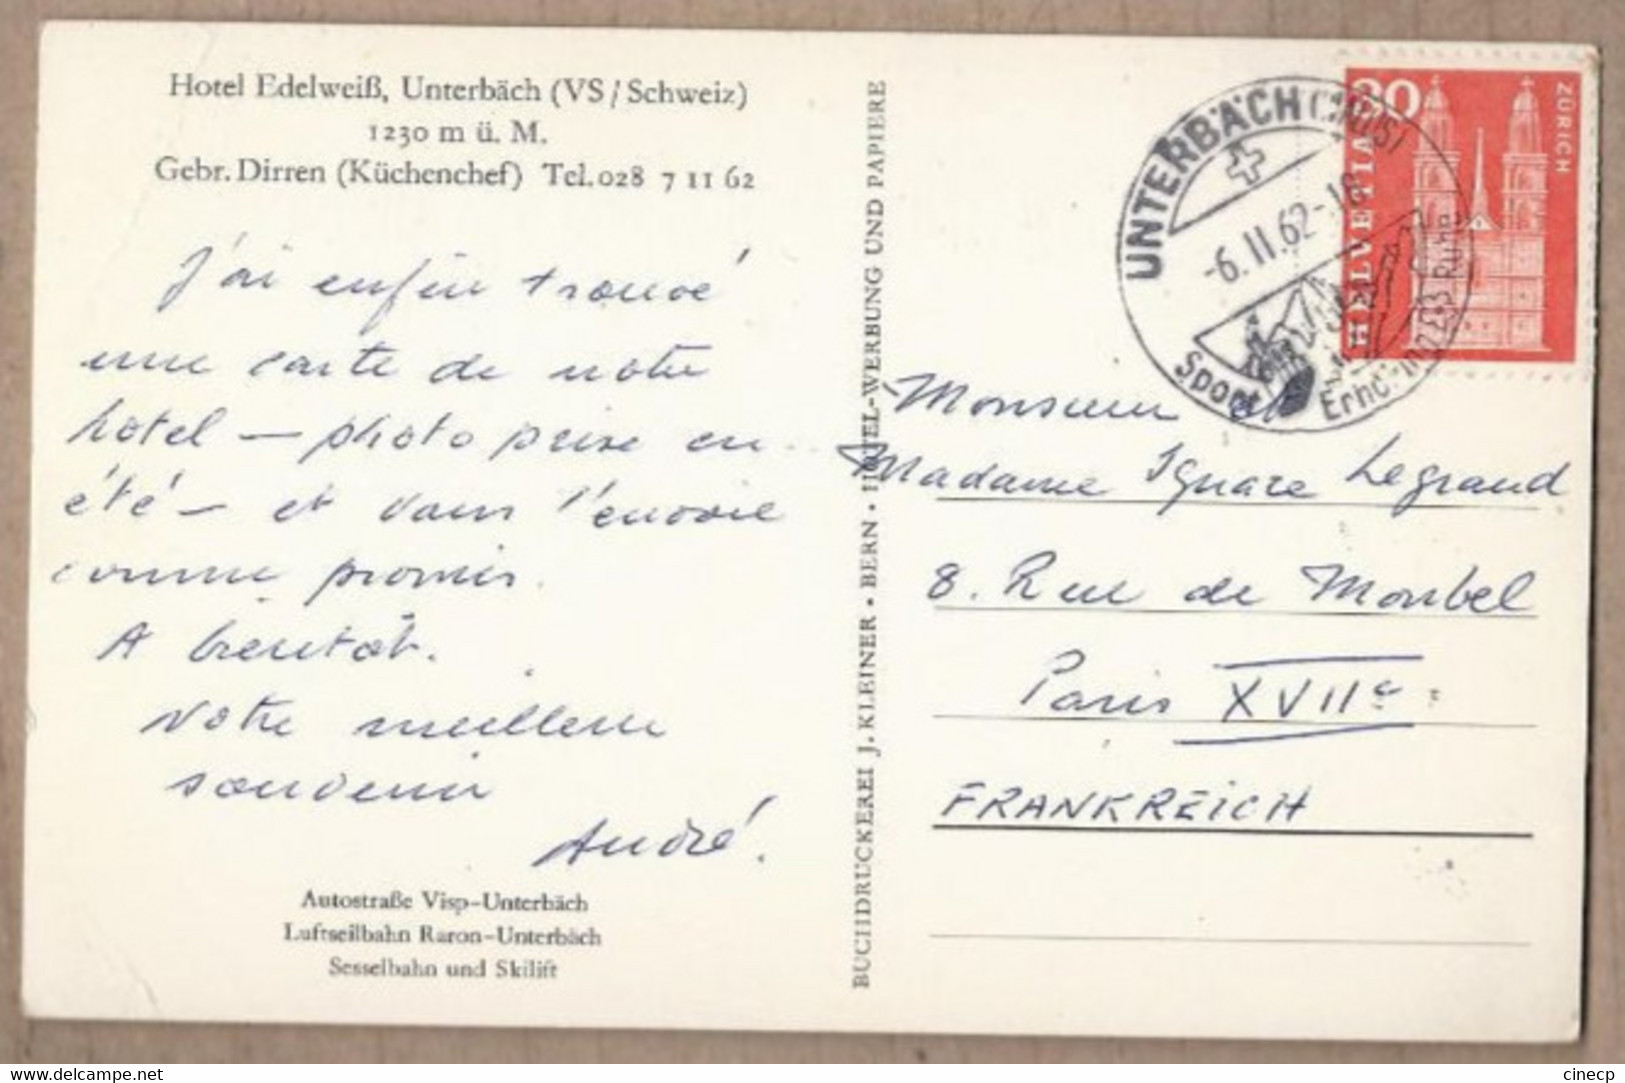 Hotel Edelweiß, Unterbäch (VS/Schweiz)
1230 m ü. M.
Gebr. Dirren (Küchenchef) Tel. 028 7 11 62
J'ai enfin trouvé
une carte de notre
hotel — photo prise en
été — et vous l'envoie
comme promis.
A bientôt.
Notre meilleur
souvenir
André.
Autostraße Visp-Unterbäch
Luftseilbahn Raron-Unterbäch
Sesselbahn und Skilift
BUCHDRUCKEREI J. KLEINER · BERN · HOTEL-WERBUNG UND PAPIERE
UNTERBÄCH
-6.II.62-18
Sport
Ruhe
HELVETIA
ZÜRICH
Monsieur et
Madame Ignace Legrand
8. Rue de Monbel
Paris XVIIe
FRANKREICH
www.delcampe.net
cinecp